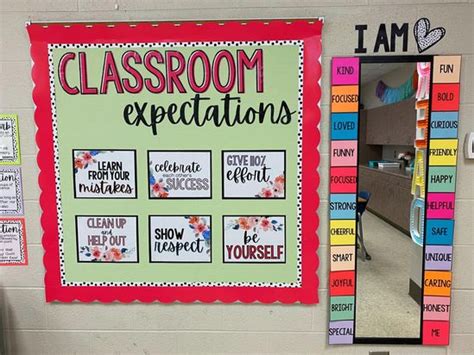 CLASSROOM
expectations
LEARN
FROM YOUR
mistakes
celebrate
each other's
SUCCESS
GIVE 110%
effort
CLEAN UP
and
HELP OUT
SHOW
respect
be
YOURSELF
I AM
KIND
FOCUSED
LOVED
FUNNY
SMART
JOYFUL
BRIGHT
SPECIAL
FUN
BOLD
CURIOUS
FRIENDLY
HAPPY
HELPFUL
SAFE
UNIQUE
HONEST
ME